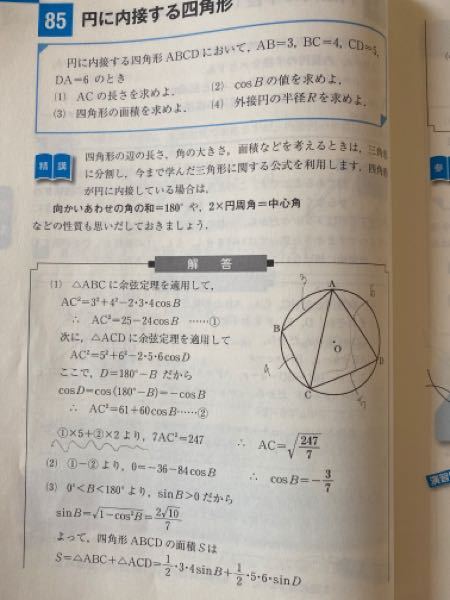 85 円に内接する四角形
円に内接する四角形 ABCD において，AB=3，BC=4，CD=5，
DA=6 のとき
(1) AC の長さを求めよ． (2) cosB の値を求めよ．
(3) 四角形の面積を求めよ． (4) 外接円の半径Rを求めよ．
精講
四角形の辺の長さ，角の大きさ，面積などを考えるときは，三角形
に分割し，今まで学んだ三角形に関する公式を利用します．四角形
が円に内接している場合は，
向かいあわせの角の和=180° や，2×円周角=中心角
などの性質も思いだしておきましょう．
解答
(1) △ABC に余弦定理を適用して，
AC²=3²+4²−2・3・4cosB
∴ AC²=25−24cosB ……①
次に，△ACD に余弦定理を適用して
AC²=5²+6²−2・5・6cosD
ここで，D=180°−B だから
cosD=cos(180°−B)=−cosB
∴ AC²=61+60cosB……②
①×5+②×2より，7AC²=247 ∴ AC=√(247/7)
(2) ①−② より，0=−36−84cosB ∴ cosB=−3/7
(3) 0°<B<180° より，sinB>0 だから
sinB=√(1−cos²B)=2√10/7
よって，四角形 ABCD の面積Sは
S=△ABC+△ACD=1/2・3・4sinB+1/2・5・6・sinD
A
B
C
D
O
3
4
5
6
参
演習